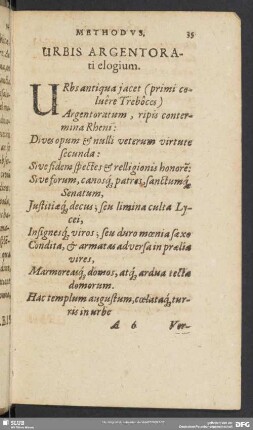 METHODVS. 35
URBIS ARGENTORA-
ti elogium.
URbs antiqua jacet (primi co-
luêre Trebôces)
Argentoratum, ripis conter-
mina Rheni:
Dives opum & nulli veterum virtute
secunda:
Sive fidem spectes & relligionis honorē:
Sive forum, canosq́, patres, sanctumq́,
Senatum,
Justitiæq́, decus; seu limina culta Ly-
cei,
Insignesq́, viros; seu duro mœnia saxo
Condita, & armatas adversa in prælia
vires,
Marmoreasq́, domos, atq́, ardua tecta
domorum.
Hac templum augustum, cœlataq́, tur-
ris in urbe
A 6 Ver-
SLUB
DFG